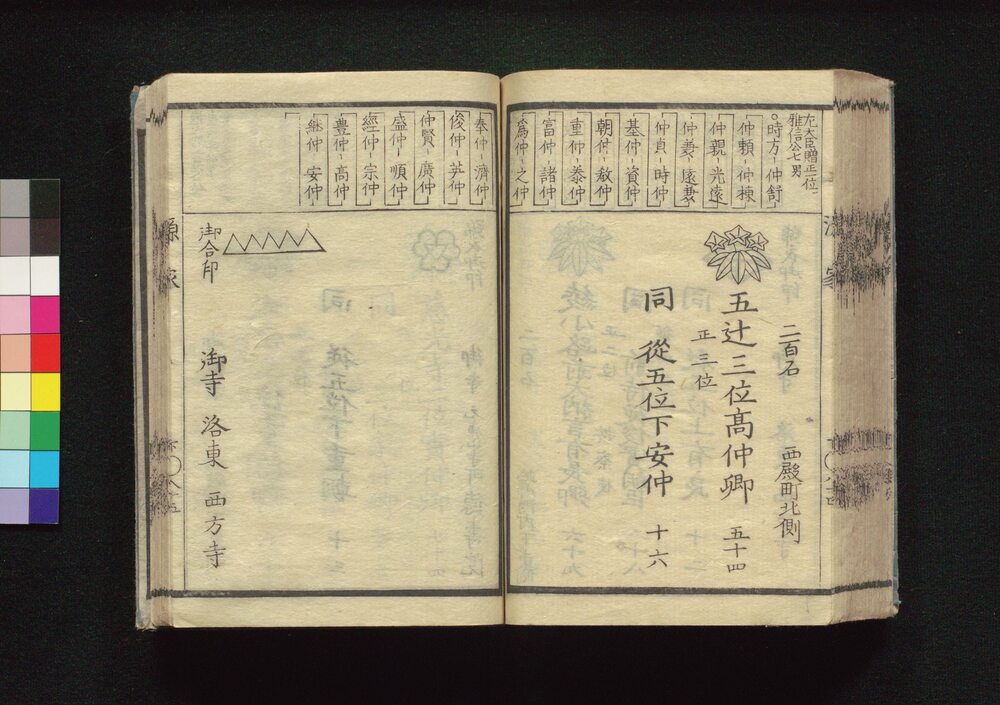 左大臣贈正一位
雅信公七男
○時方-仲舒
仲頼-仲棟
仲親-光遠
仲兼-遠兼
仲貞-時仲
基仲-資仲
朝仲-敎仲
重仲-泰仲
富仲-諸仲
爲仲-之仲
二百石 西殿町北側
五辻三位高仲卿 五十四
正三位
同 從五位下安仲 十六
奉仲-濟仲
俊仲-英仲
仲賢-廣仲
盛仲-順仲
經仲-宗仲
豊仲-高仲
継仲 安仲
御合印
御寺 洛東 西方寺
源家